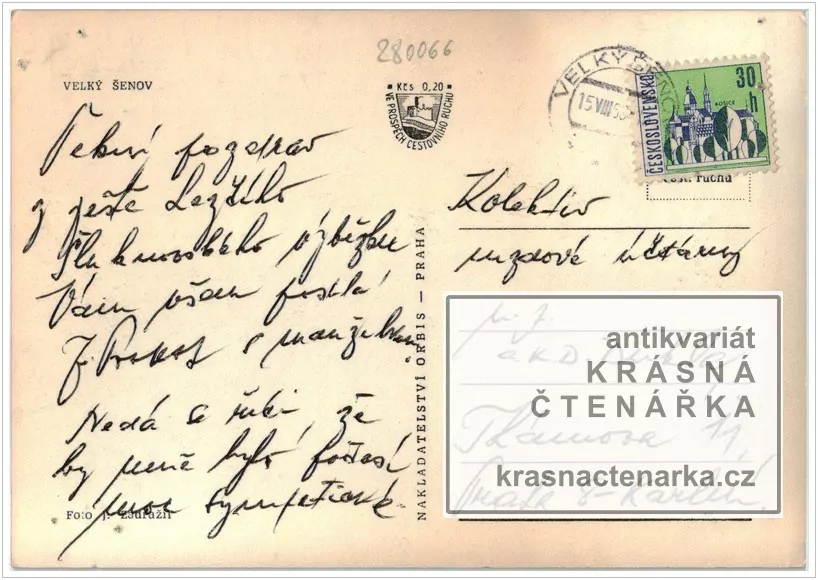 280066
VELKÝ ŠENOV
Kčs 0,20
VE PROSPĚCH CESTOVNÍHO RUCHU
VELKÝ ŠENO
15.VIII.
ČESKOSLOVENSKO
30 h
KOŠICE
cest. ruchu
Pěkný pozdrav
z ještě hezčího
Šluknovského výběžku
Vám všem posílá
J. s manželkou.
Nedá se říci, že
by mně bylo počasí
moc sympatické.
Foto J. Zoufalil
NAKLADATELSTVÍ ORBIS — PRAHA
Kolektiv
mzdové účtárny
n. p.
11,
Praha 8 - Karlín,
antikvariát
KRÁSNÁ
ČTENÁŘKA
krasnactenarka.cz